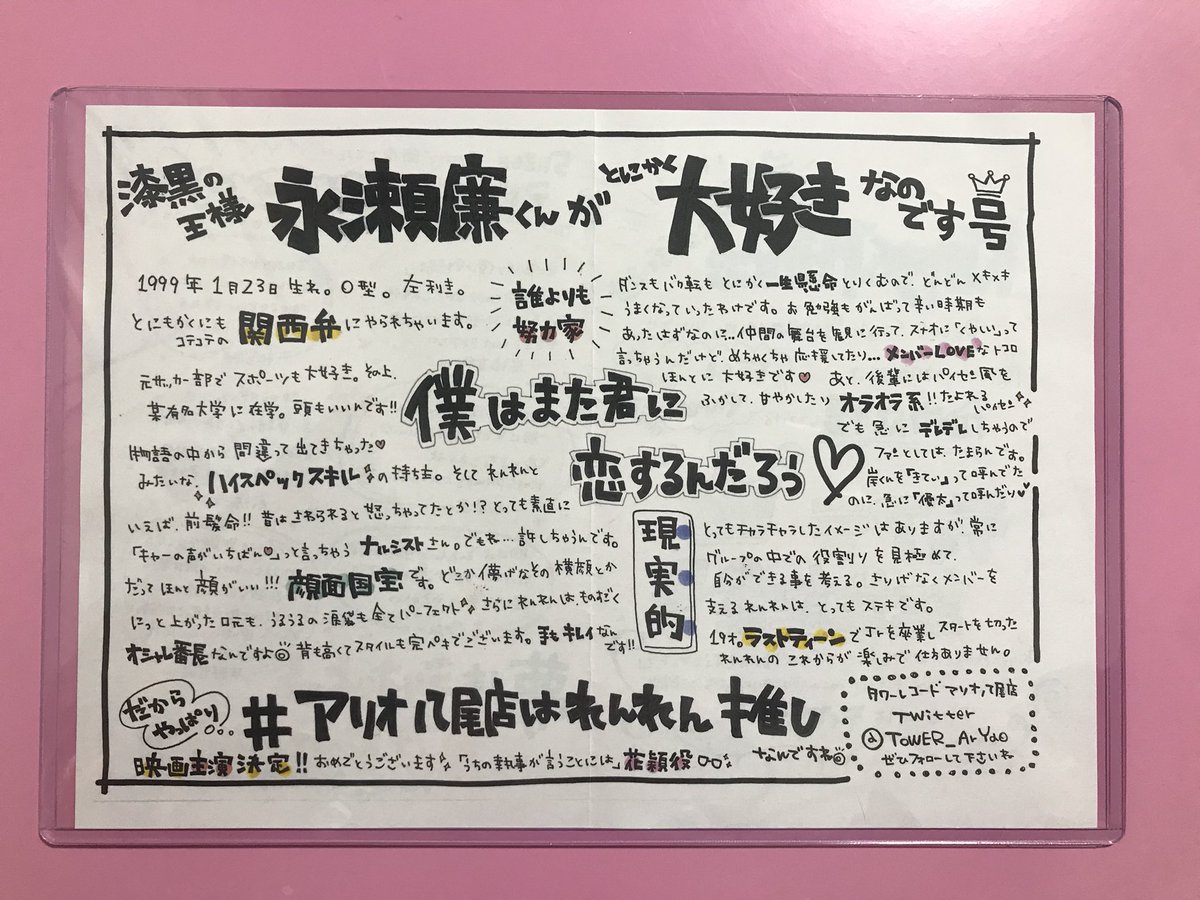 漆黒の王様 永瀬廉くんが とにかく 大好き なのです号
1999年1月23日生れ。O型。左利き。
とにもかくにもコテコテの 関西弁 にやられちゃいます。
元サッカー部でスポーツも大好き。その上、
某有名大学に在学。頭もいいんです!!
物語の中から間違って出てきちゃった♡
みたいな、ハイスペックスキルの持ち主。そして れんれんと
いえば、前髪命!! 昔はさわられると怒っちゃってたとか!? とっても素直に
「キャーの声がいちばん♡」って言っちゃう ナルシストさん。でもね…許しちゃうんです。
だってほんと顔がいい!!! 顔面国宝です。どこか儚げなその横顔とか
にっと上がった口元も、うるうるの涙袋も全てパーフェクト さらにれんれんは、ものすごく
オシャレ番長なんですよ 背も高くてスタイルも完ペキでございます。手もキレイなんです!!
誰よりも
努力家
僕はまた君に
恋するんだろう♡
ダンスもバク転も とにかく一生懸命とりくむので、どんどんメキメキ
うまくなっていったわけです。お勉強もがんばって辛い時期も
あったはずなのに…仲間の舞台を観に行って、スナオに「くやしい」って
言っちゃうんだけど、めちゃくちゃ応援してたり… メンバーLOVEなトコロ
ほんとに大好きです♥ あと、後輩にはパイセン風を
ふかして、甘やかしたり オラオラ系!! たよれるパイセン
でも急に デレデレしちゃうので
ファンとしては、たまらんです。
岸くんを「きてぃ」って呼んでた
のに、急に「優太」って呼んだり♥
現実的
とってもチャラチャラしたイメージはありますが、常に
グループの中での役割りを見極めて、
自分ができる事を考える。さりげなくメンバーを
支えるれんれんは、とってもステキです。
19才。ラストティーンでJrを卒業しスタートを切った
れんれんのこれからが楽しみで仕方ありません。
だからやっぱり… #アリオ八尾店はれんれん推し なんですね
映画主演決定!! おめでとうございます 「うちの執事が言うことには」花穎役
タワーレコード アリオ八尾店
TWitter
@TOWER_ArYao
ぜひフォローして下さいね